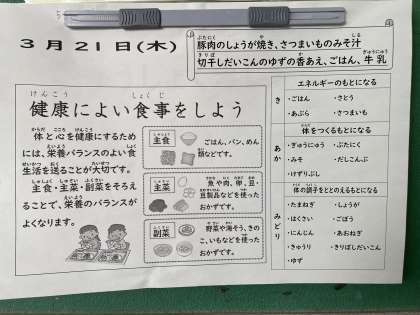 3月21日(木)
豚肉のしょうが焼き、さつまいものみそ汁
切干しだいこんのゆずの香あえ、ごはん、牛乳
健康によい食事をしよう
体と心を健康にするため
には、栄養バランスのよい食
生活を送ることが大切です。
主食・主菜・副菜をそろえ
ることで、栄養のバランスが
よくなります。
主食
ごはん、パン、めん
類などです。
主菜
魚や肉、卵、豆・
豆製品などを使った
おかずです。
副菜
野菜や海そう、きの
こ、いもなどを使った
おかずです。
き
エネルギーのもとになる
・ごはん ・さとう
・あぶら ・さつまいも
あか
体をつくるもとになる
・ぎゅうにゅう ・ぶたにく
・みそ ・だしこんぶ
・けずりぶし
みどり
体の調子をととのえるもとになる
・たまねぎ ・しょうが
・はくさい ・ごぼう
・にんじん ・あおねぎ
・きゅうり ・きりぼしだいこん
・ゆず